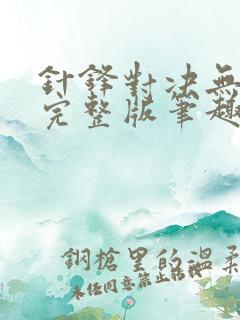 針鋒對決無
完整版筆趣
鋼槍里的溫柔
未經同意禁止轉載